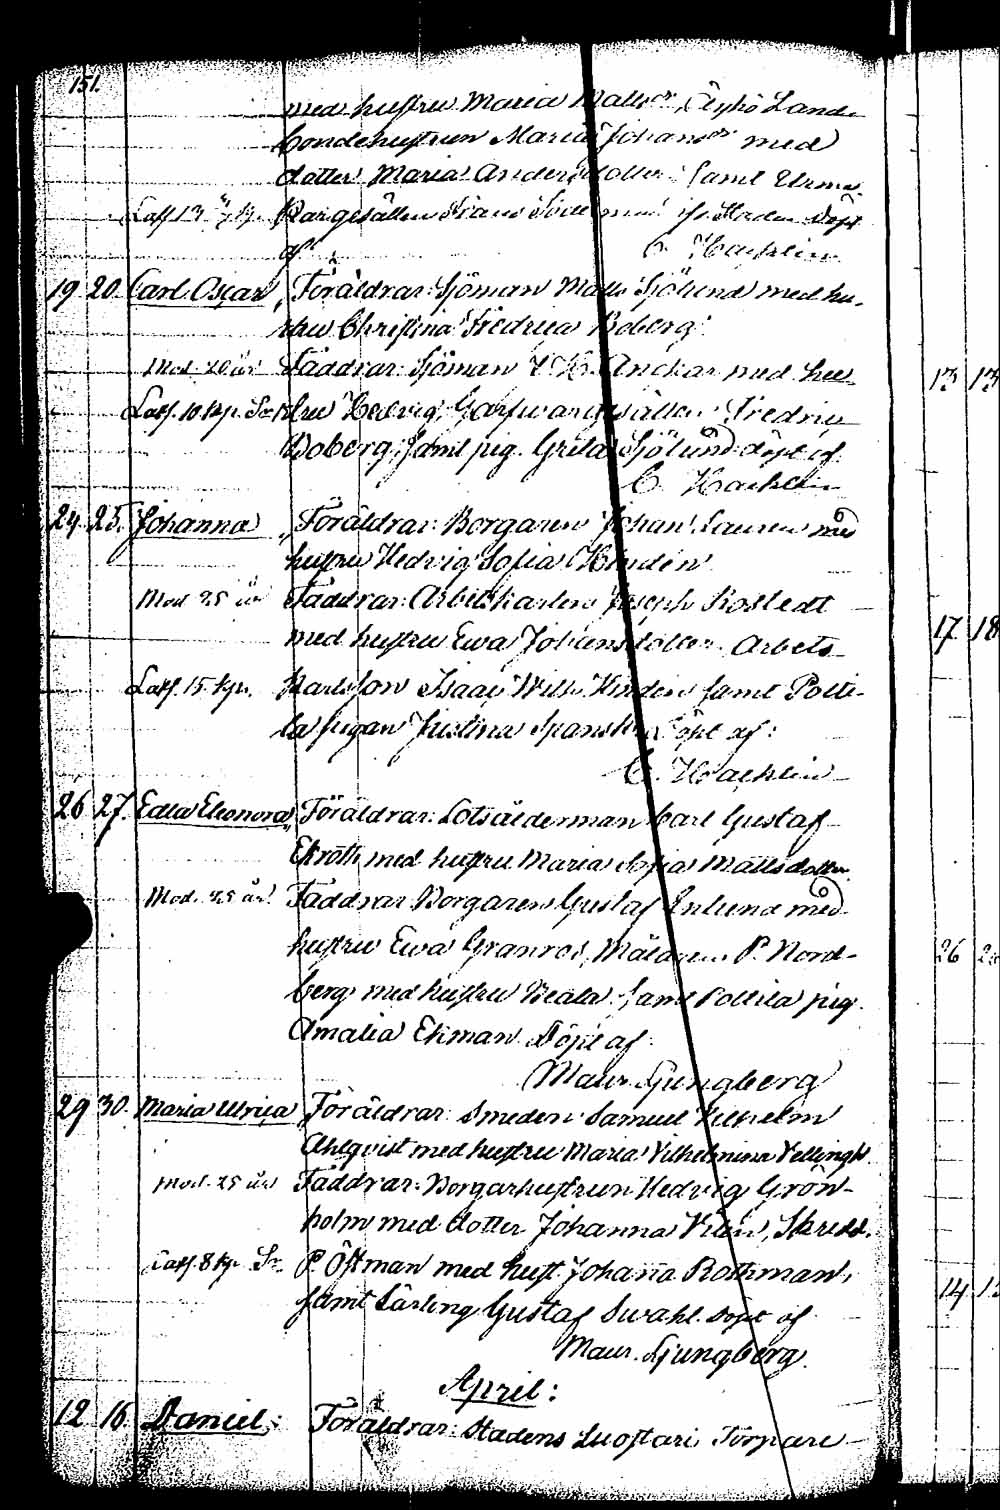 151.
med hustru Maria Matts dr,
bondehustrun Maria Johans dr med
dotter Maria Anders dotter samt
Sören Döpt
af C. Hacklin
19 20. Carl Oscar, Föräldrar: Sjöman Matts Sjölund med hu-
stru Christina Fredrica Boberg.
Mod. 20 år Faddrar: Sjöman Anckar med hu-
Latf. 10 kp. stru Hedvig, Garfwargesällen Fredric
Boberg, samt pig. Greta Sjölund döpt af
C. Hacklin
24 25. Johanna, Föräldrar: Borgaren Johan Lauren med
hustru Hedvig Sofia Hindén
Mod 25 år Faddrar: Arbetskarlen Joseph Rostedt
med hustru Ewa Johansdotter Arbets
Latf. 15 kp. Karlsson Isaac Wilh. Hindén samt Potti-
la pigan Justina Spansk Döpt af:
C. Hacklin
26 27. Edla Eleonora, Föräldrar: Lotsålderman Carl Gustaf
Ekroth med hustru Maria Sofia Mattsdotter.
Mod. 25 år Faddrar Borgaren Gustaf Enlund med
hustru Ewa Granros, Målaren P. Nord-
berg med hustru Beata samt Pottila pig.
Amalia Ekman. Döpt af:
Maur. Ljungberg
29 30. Maria Ulrica, Föräldrar: Smeden Samuel Vilhelm
Ahlqvist med hustru Maria Vilhelmina Vellingk.
Mod. 25 år Faddrar: Borgarhustrun Hedvig Grön-
holm med dotter Johanna, Skredd.
Latf. 8 kp. Sr. P. Östman med hust. Johanna Rothman,
samt Lärling Gustaf Swahl. Döpt af
Maur. Ljungberg.
April:
12 16. Daniel, Föräldrar: Stadens Luostari Torpare
13 13
17 18
26
14